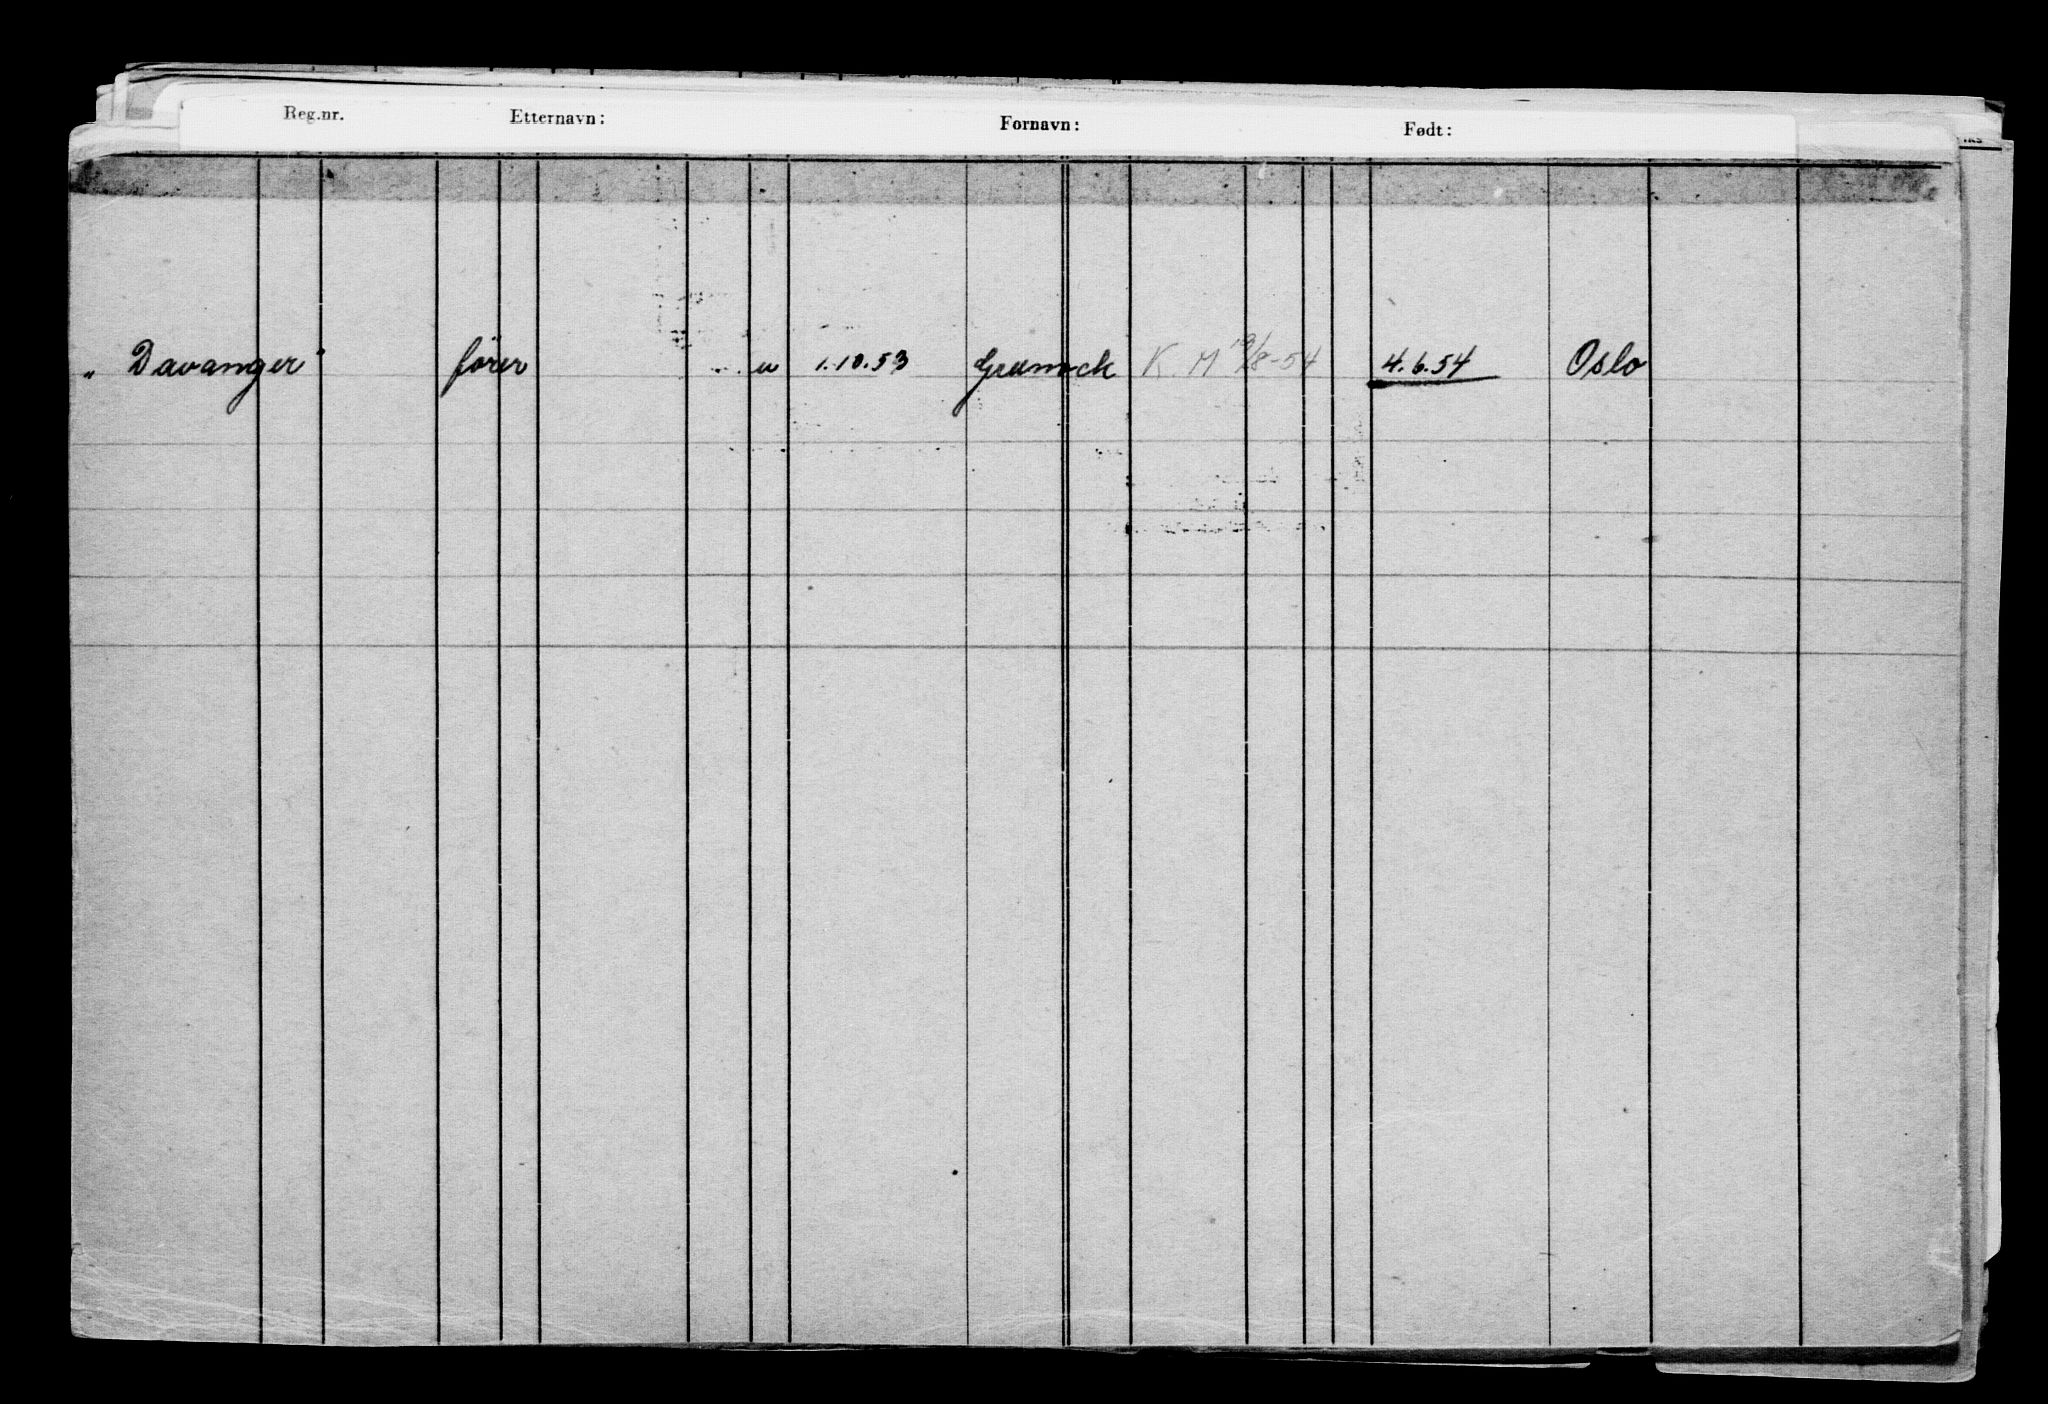 Reg.nr. Etternavn: Fornavn: Født:
„Davanger" fører u 1.10.53 K. M 19/8-54 4.6.54 Oslo